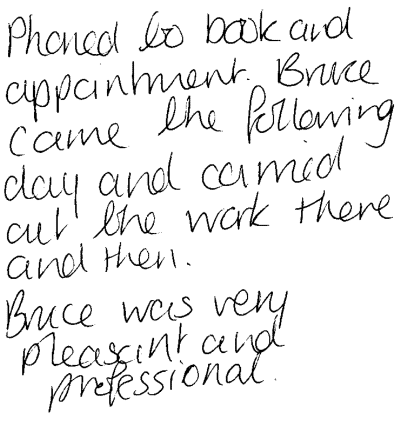 Phoned to book and
appointment. Bruce
came the following
day and carried
out the work there
and then.
Bruce was very
pleasant and
professional.